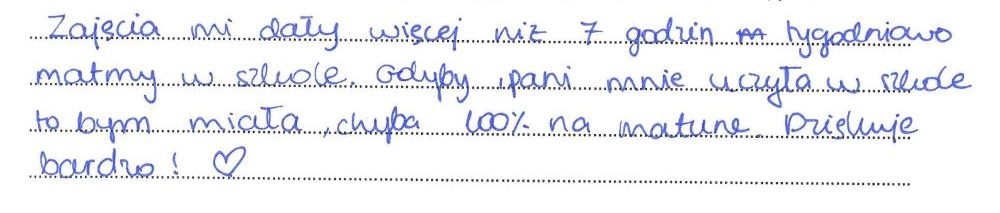 Zajęcia mi dały więcej niż 7 godzin tygodniowo
matmy w szkole. Gdyby pani mnie uczyła w szkole
to bym miała chyba 100% na maturze. Dziękuję
bardzo! ♡